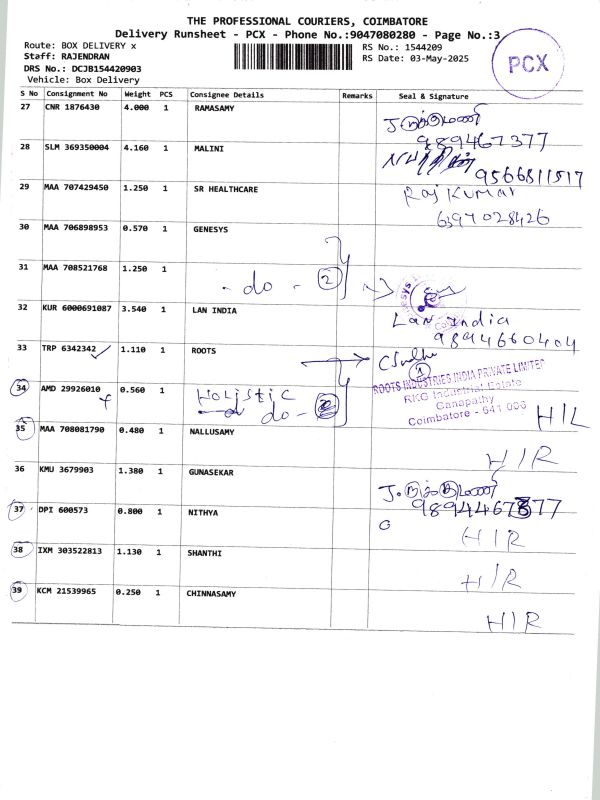 THE PROFESSIONAL COURIERS, COIMBATORE
Delivery Runsheet - PCX - Phone No.:9047080280 - Page No.:3
Route: BOX DELIVERY x
Staff: RAJENDRAN
DRS No.: DCJB154420903
Vehicle: Box Delivery
RS No.: 1544209
RS Date: 03-May-2025
PCX
S No Consignment No Weight PCS Consignee Details Remarks Seal & Signature
27 CNR 1876430 4.000 1 RAMASAMY
9894467377
28 SLM 369350004 4.160 1 MALINI
9566811517
29 MAA 707429450 1.250 1 SR HEALTHCARE Raj Kumar
6397028426
30 MAA 706898953 0.570 1 GENESYS
31 MAA 708521768 1.250 1 - do - 2
32 KUR 6000691087 3.540 1 LAN INDIA Lan India
9894660404
33 TRP 6342342 1.110 1 ROOTS
1
ROOTS INDUSTRIES INDIA PRIVATE LIMITED
RKG Industrial Estate
Ganapathy
Coimbatore - 641 006
34 AMD 29926010 0.560 1 Holistic
do - H/L
35 MAA 708081790 0.480 1 NALLUSAMY H/R
36 KMU 3679903 1.380 1 GUNASEKAR
37 DPI 600573 0.800 1 NITHYA H/R
38 IXM 303522813 1.130 1 SHANTHI H/R
39 KCM 21539965 0.250 1 CHINNASAMY H/R